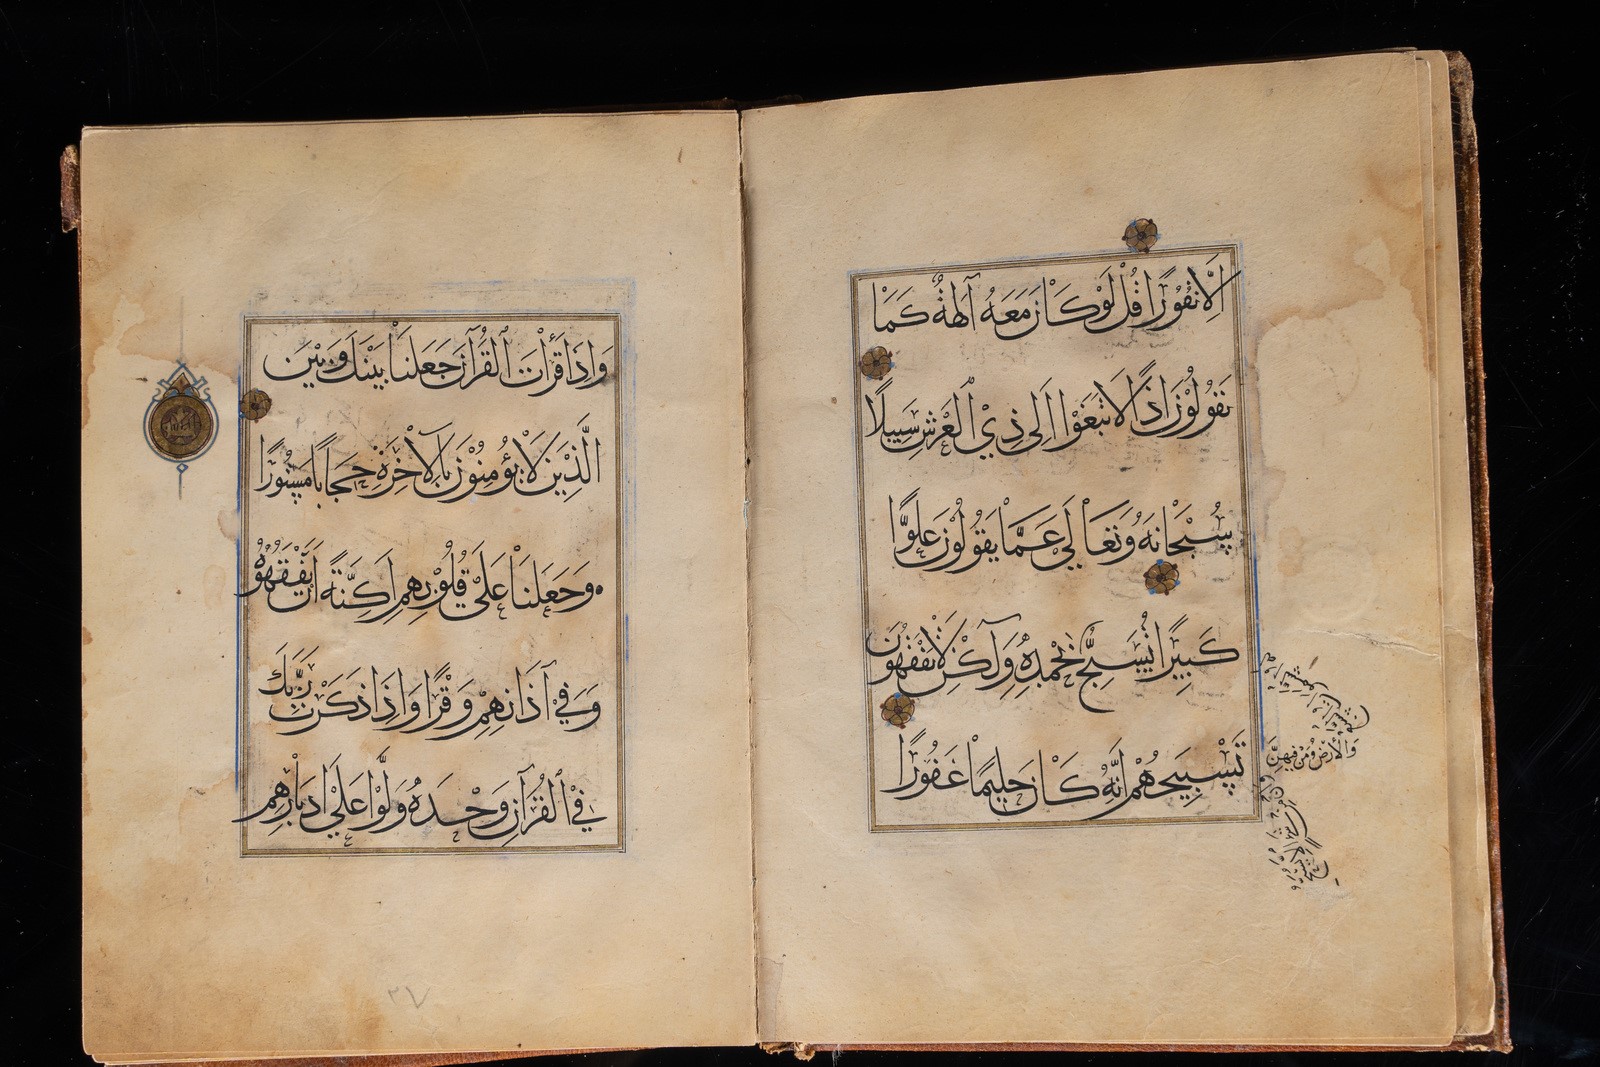 اِلَّا نُفُوْرًا قُلْ لَوْ كَانَ مَعَهُ آلِهَةٌ كَمَا
يَقُوْلُوْنَ اِذًا لَابْتَغَوْا اِلَى ذِيْ الْعَرْشِ سَبِيْلًا
سُبْحَانَهُ وَتَعَالَى عَمَّا يَقُوْلُوْنَ عُلُوًّا
كَبِيْرًا تُسَبِّحُ بِحَمْدِهِ وَلَكِنْ لَا تَفْقَهُوْنَ
تَسْبِيْحَهُمْ اِنَّهُ كَانَ حَلِيْمًا غَفُوْرًا
وَالْأَرْضُ وَمَنْ فِيهِنَّ
وَاِذَا قَرَأْتَ الْقُرْآنَ جَعَلْنَا بَيْنَكَ وَبَيْنَ
الَّذِيْنَ لَا يُؤْمِنُوْنَ بِالْآخِرَةِ حِجَابًا مَسْتُوْرًا
وَجَعَلْنَا عَلَى قُلُوْبِهِمْ اَكِنَّةً اَنْ يَفْقَهُوْهُ
وَفِي آذَانِهِمْ وَقْرًا وَاِذَا ذَكَرْتَ رَبَّكَ
فِي الْقُرْآنِ وَحْدَهُ وَلَّوْا عَلَى اَدْبَارِهِمْ
٢٧